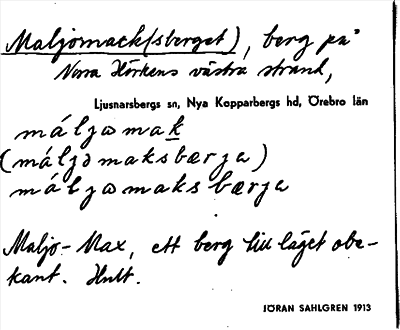 Maljomack(sberget), berg på
Norra Hörkens västra strand,
Ljusnarsbergs sn, Nya Kopparbergs hd, Örebro län
máljɷmak̲
(máljɔmaksbærja)
máljɷmaksbærja
Maljo-Max, ett berg till läget obe-
kant. Hult.
JÖRAN SAHLGREN 1913